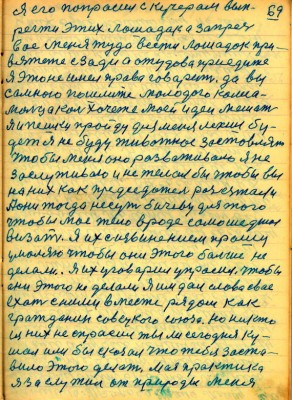 69
ся его попросил с кучером вып-
регти этих лошадок а запреч
Вас меня туда вести лошадок при-
вяжете сзади а оттудова приедите
Я этого не имел права говорить. да вы
самого пошлите молодого комса-
мольца как хочете моей идеи мешат
Я и пешки пройду для меня легши бу-
дет я не буду животное заставлять
чтобы меня оно развазивало. я не
заслуживаю и не желал бы чтобы вы
на них как председателя разезжали
А они тогда несут бичеву для того
чтобы мое тело вроде самошедшего
визать. Я их с извинением прошу
умоляю чтобы они этого больше не
делали. Я их уговорил упросил, чтобы
они этого не делали Я им дал слово свое
ехать с ними вместе рядом как
гражданин советского союза. но никто
из них не опросил ты ли сегодня ку-
шал или бы сказал что тебя заста-
вило этого делать. Мая практика
я заслужил от природы меня